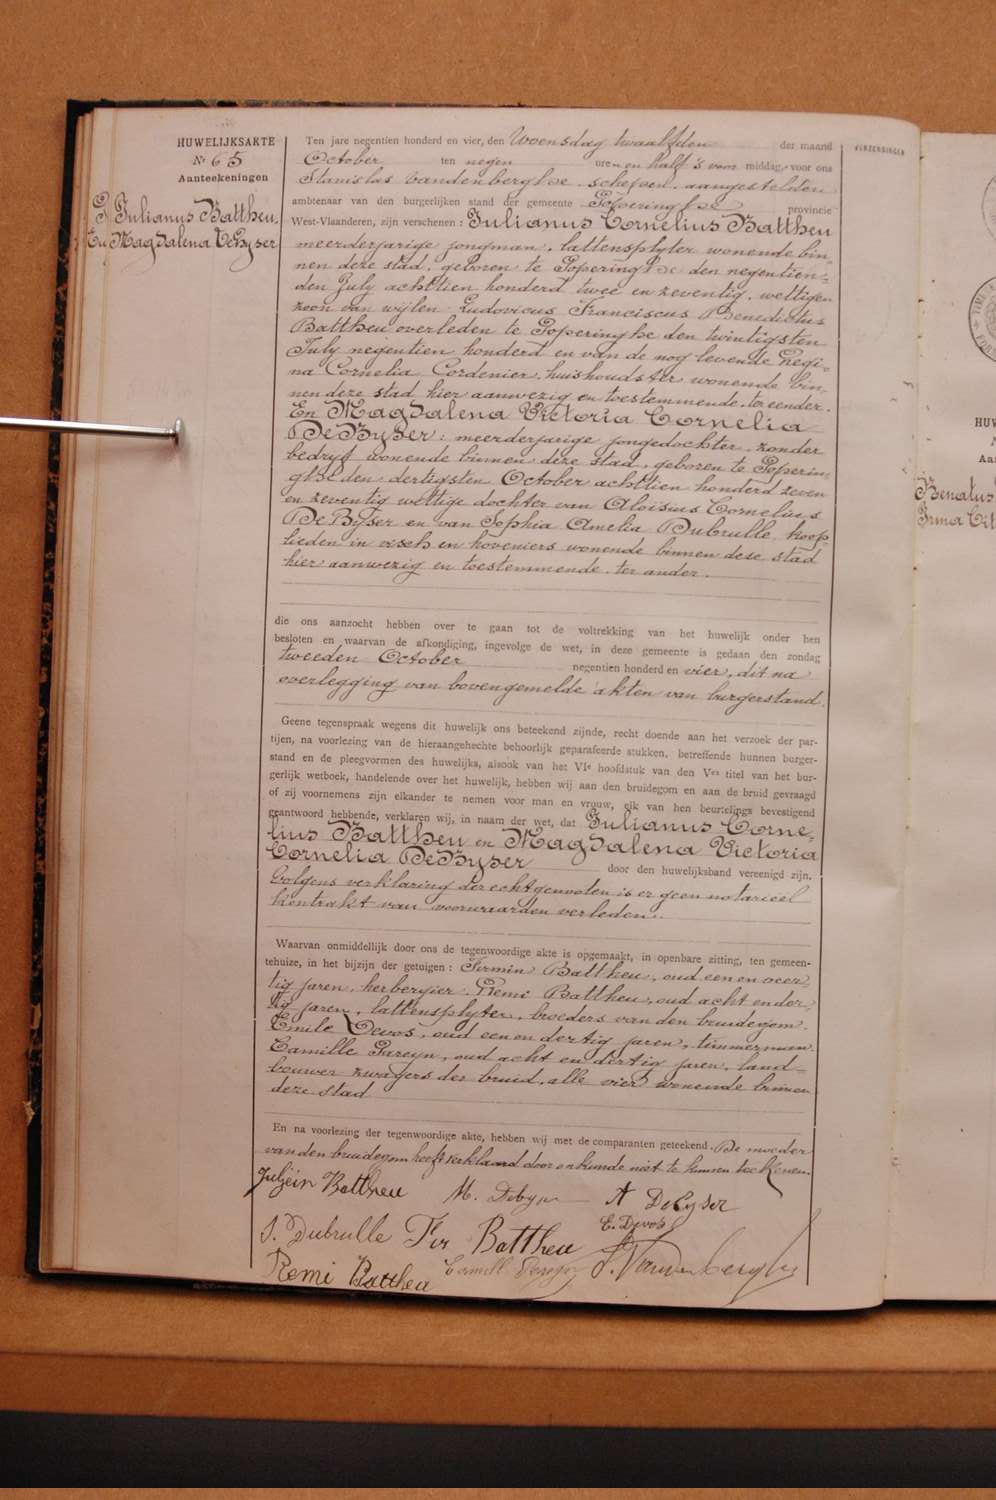 HUWELIJKSAKTE
Nr 65
Aanteekeningen
Julianus Battheu,
En Magdalena DeByser
Ten jare negentien honderd en vier, den Woensdag twaalfden der maand
October ten negen uren en half 's voor middag, voor ons
Stanislas Vandenberghe schepen, aangestelden
ambtenaar van den burgerlijken stand der gemeente Poperinghe provincie
West-Vlaanderen, zijn verschenen : Julianus Cornelius Battheu
meerderjarige jongman, lattensplyter wonende bin-
nen deze stad, geboren te Poperinghe den negentien-
den July achttien honderd twee en zeventig, wettigen
zoon van wijlen Ludovicus Franciscus Benedictus
Battheu overleden te Poperinghe den twintigsten
July negentien honderd en van de nog levende Regi-
na Cornelia Cordenier, huishoudster wonende bin-
nen deze stad hier aanwezig en toestemmende, ter eender.
En Magdalena Victoria Cornelia
DeByser : meerderjarige jongedochter, zonder
bedryf wonende binnen deze stad, geboren te Poperin-
ghe den dertigsten October achttien honderd zeven
en zeventig wettige dochter van Aloisius Cornelius
DeByser en van Sophia Amelia Dubrulle, koop-
lieden in visch en hoveniers wonende binnen deze stad
hier aanwezig en toestemmende, ter ander.
die ons aanzocht hebben over te gaan tot de voltrekking van het huwelijk onder hen
besloten en waarvan de afkondiging, ingevolge de wet, in deze gemeente is gedaan den zondag
tweeden October negentien honderd en vier, dit na
overlegging van bovengemelde akten van burgerstand.
Geene tegenspraak wegens dit huwelijk ons beteekend zijnde, recht doende aan het verzoek der par-
tijen, na voorlezing van de hieraangehechte behoorlijk geparafeerde stukken, betreffende hunnen burger-
stand en de pleegvormen des huwelijks, alsook van het VIe hoofdstuk van den Ven titel van het bur-
gerlijk wetboek, handelende over het huwelijk, hebben wij aan den bruidegom en aan de bruid gevraagd
of zij voornemens zijn elkander te nemen voor man en vrouw, elk van hen beurtelings bevestigend
geantwoord hebbende, verklaren wij, in naam der wet, dat Julianus Corne-
lius Battheu en Magdalena Victoria
Cornelia DeByser door den huwelijksband vereenigd zijn.
Volgens verklaring der echtgenooten is er geen notarieël
kontrakt van voorwaarden verleden.
Waarvan onmiddellijk door ons de tegenwoordige akte is opgemaakt, in openbare zitting, ten gemeen-
tehuize, in het bijzijn der getuigen : Firmin Battheu, oud een en veer-
tig jaren, herbergier, Remi Battheu, oud acht en der-
tig jaren, lattensplyter, broeders van den bruidegom,
Emile Devos, oud een en dertig jaren, timmerman
Camille Pareyn, oud acht en dertig jaren, land-
bouwer zwagers der bruid, alle vier wonende binnen
deze stad
En na voorlezing der tegenwoordige akte, hebben wij met de comparanten geteekend. De moeder
van den bruidegom heeft verklaard door onkunde niet te kunnen teekenen.
Juliein Battheu M. Debyser A DeByser
S. Dubrulle Fir Battheu E. Devos
Remi Battheu Camill Pareyn S. Vandenberghe
VERZENDINGEN
HUW
Aan
Benatus
Irma